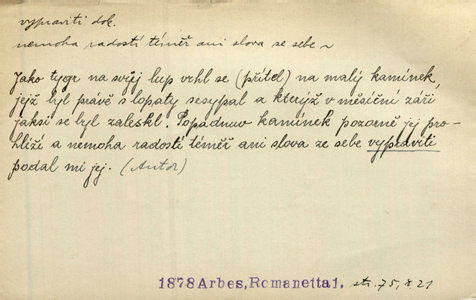 vypraviti dok.
nemoha radostí téměř ani slova se sebe ~
Jako tygr na svůj lup vrhl se (přítel) na malý kamínek,
jejž byl právě s lopaty sesypal a kterýž v měsíční záři
jaksi se byl zaleskl. Popadnuv kamínek pozorně jej pro-
hlíží a nemoha radostí téměř ani slova ze sebe vypraviti
podal mi jej. (Autor)
1878 Arbes, Romanetta 1. str. 75, ř. 21